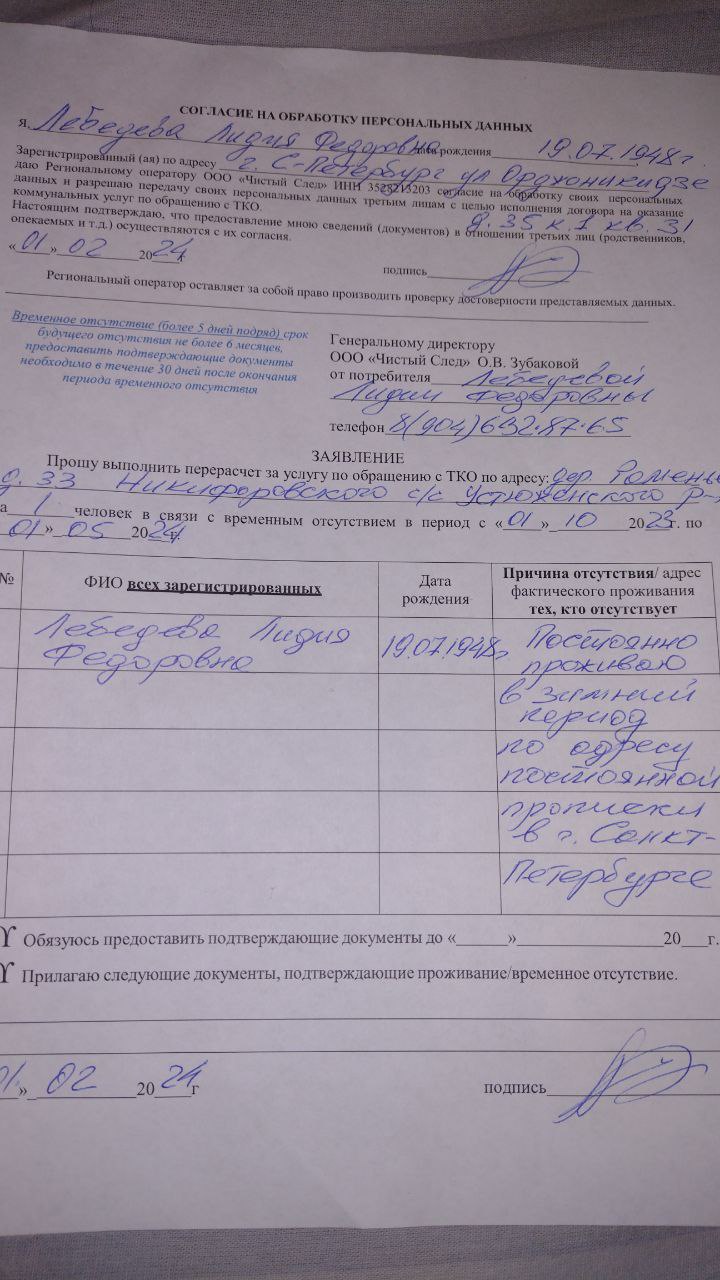 СОГЛАСИЕ НА ОБРАБОТКУ ПЕРСОНАЛЬНЫХ ДАННЫХ
Я, Лебедева Лидия Федоровна дата рождения 19.07.1948г.
Зарегистрированный (ая) по адресу г. С-Петербург ул Орджоникидзе
даю Региональному оператору ООО «Чистый След» ИНН 3528213203 согласие на обработку своих персональных
данных и разрешаю передачу своих персональных данных третьим лицам с целью исполнения договора на оказание
коммунальных услуг по обращению с ТКО. д. 35 к. 1 кв. 31
Настоящим подтверждаю, что предоставление мною сведений (документов) в отношении третьих лиц (родственников,
опекаемых и т.д.) осуществляются с их согласия.
«01» 02 2024г.
подпись
Региональный оператор оставляет за собой право производить проверку достоверности представляемых данных.
Временное отсутствие (более 5 дней подряд) срок
будущего отсутствия не более 6 месяцев,
предоставить подтверждающие документы
необходимо в течение 30 дней после окончания
периода временного отсутствия
Генеральному директору
ООО «Чистый След» О.В. Зубаковой
от потребителя Лебедевой
Лидии Федоровны
телефон 8(904)632.87.65
ЗАЯВЛЕНИЕ
Прошу выполнить перерасчет за услугу по обращению с ТКО по адресу: дер.
д. 33 Никифоровского с/с Устюженского р-
а 1 человек в связи с временным отсутствием в период с «01» 10 2023г. по
01» 05 2024г.
№ ФИО всех зарегистрированных Дата рождения Причина отсутствия/ адрес фактического проживания тех, кто отсутствует
Лебедева Лидия
Федоровна
19.07.1948г.
Постоянно
проживаю
в зимний
период
по адресу
постоянной
прописки
в г. Санкт-
Петербурге
Обязуюсь предоставить подтверждающие документы до «______»__________________20___г.
Прилагаю следующие документы, подтверждающие проживание/временное отсутствие.
01» 02 2024г
подпись